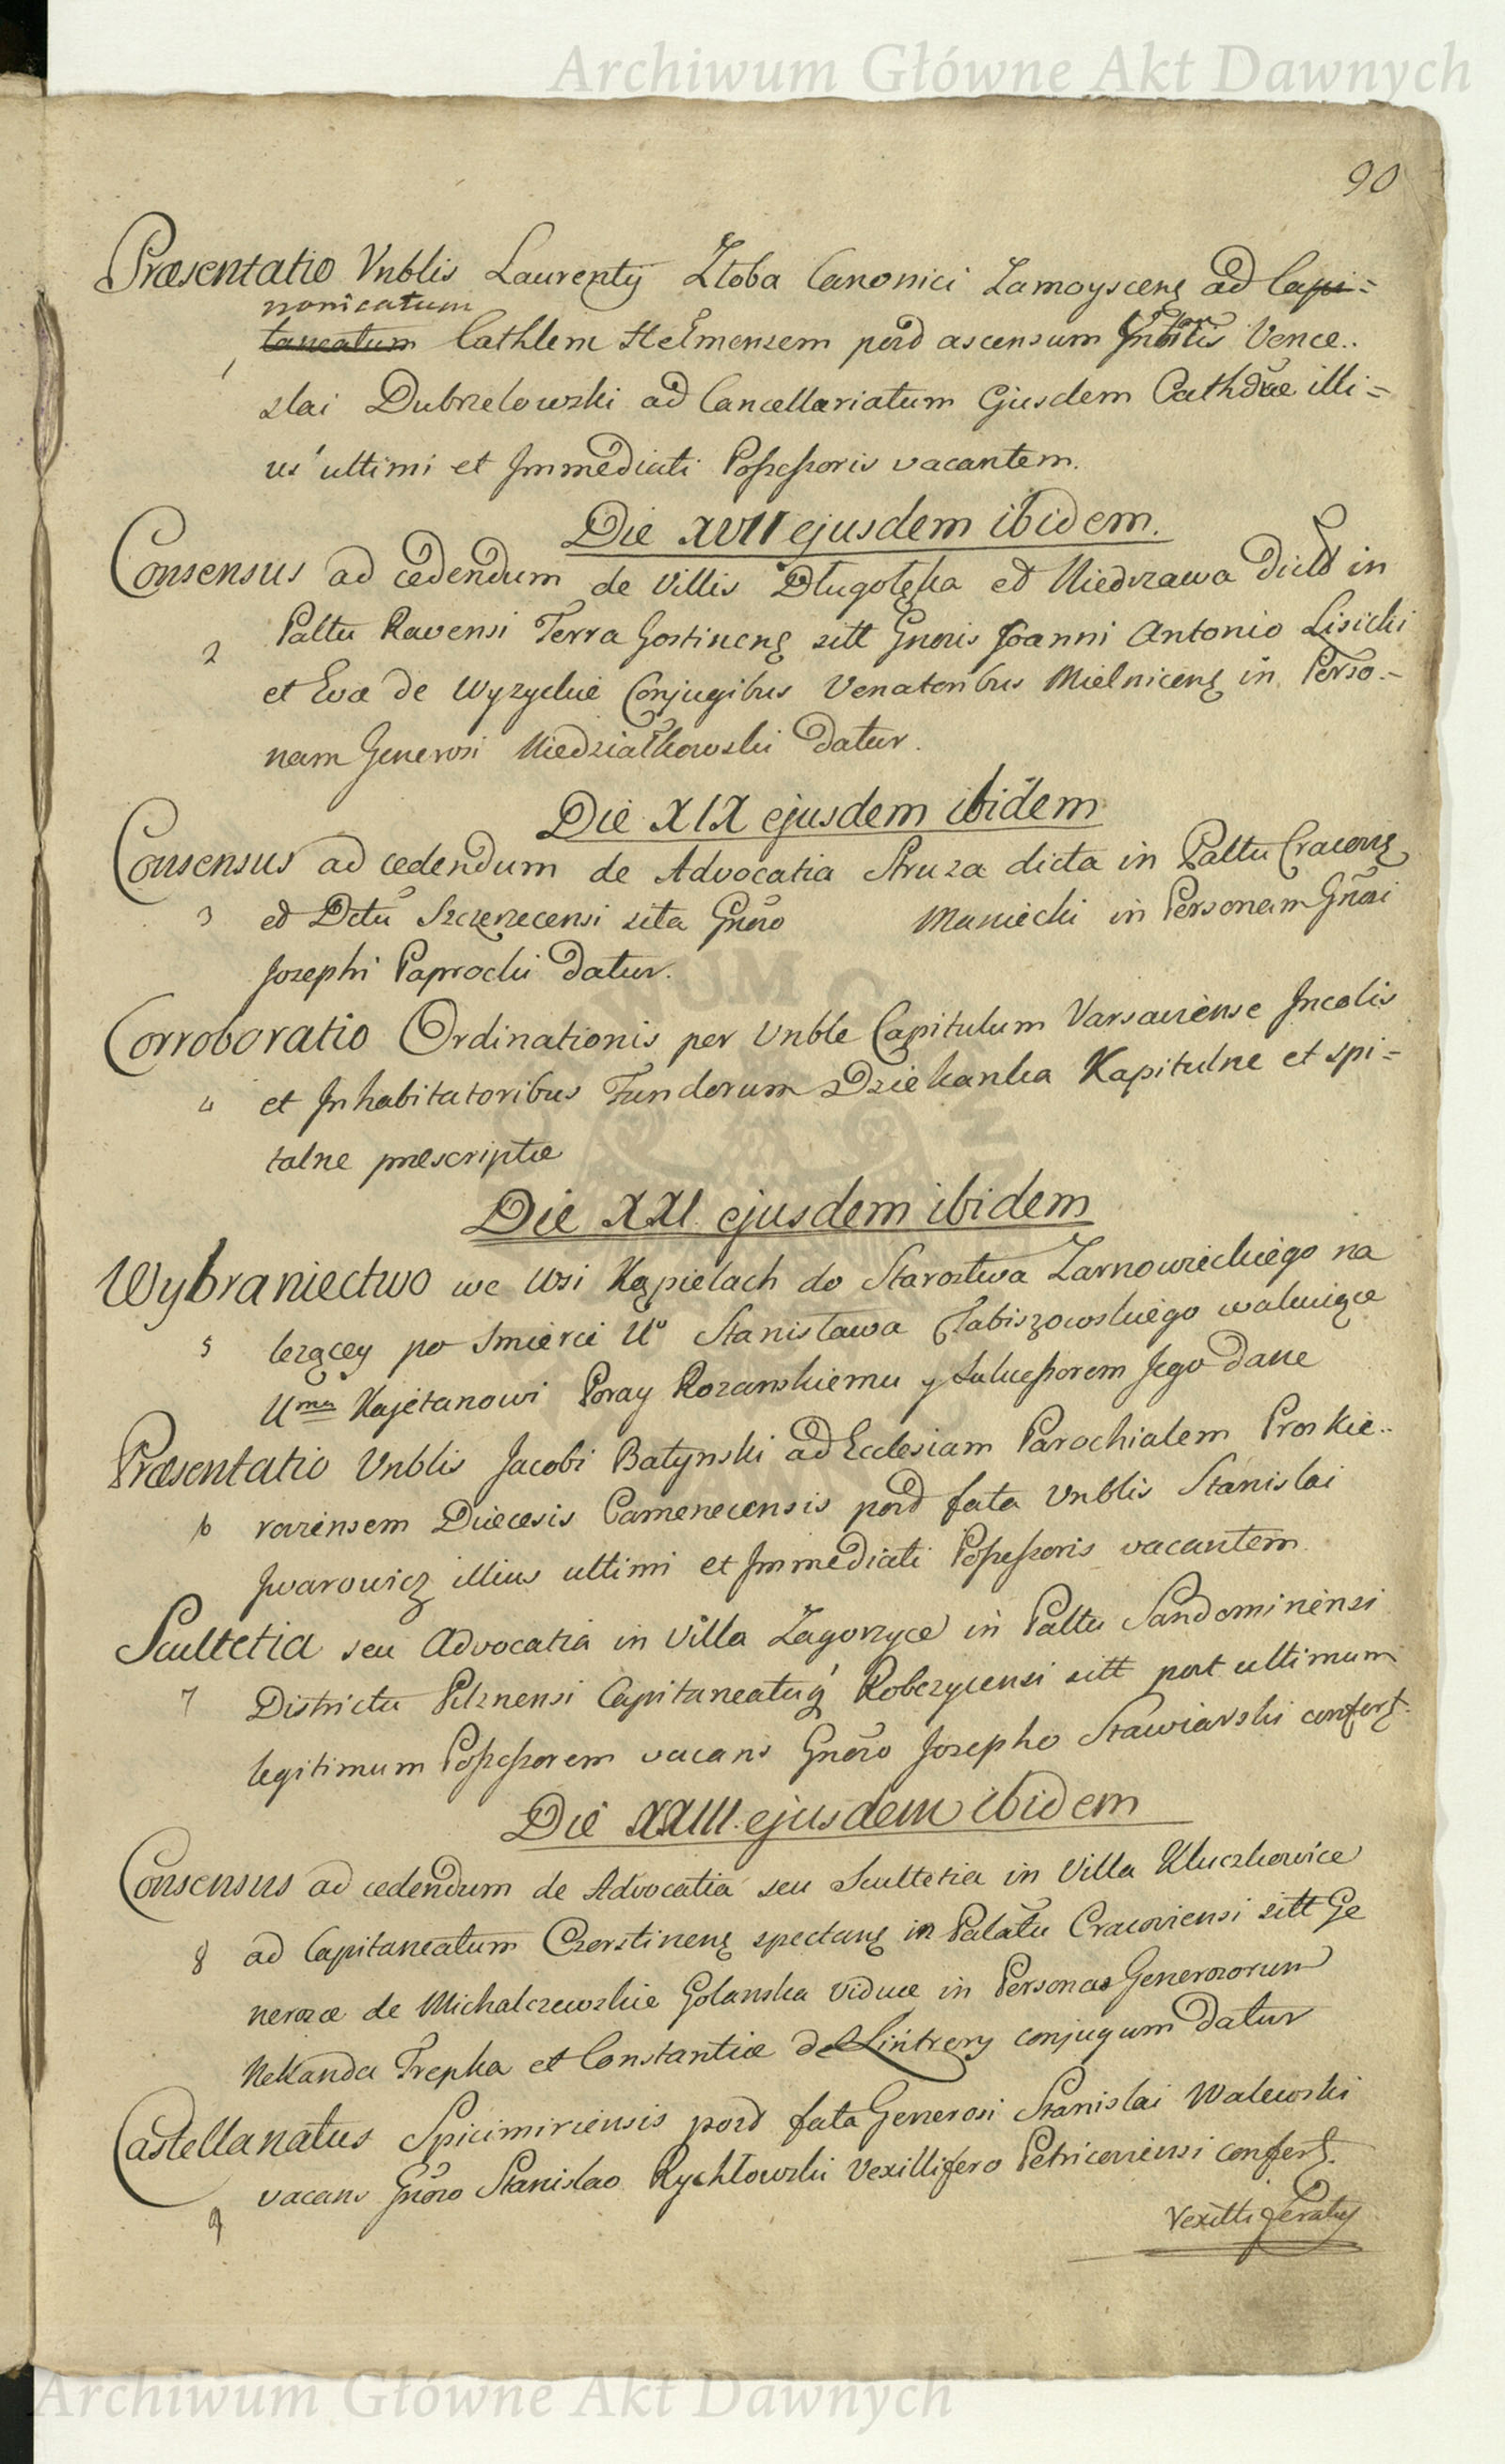 Archiwum Główne Akt Dawnych
90
Præsentatio Vnblis Laurentij Złoba Canonici Zamoyscens ad Capi=
nonicatum
taneatum Cathlem Helmensem post ascensum Vence..
1
slai Dubrzelowski ad Cancellariatum Ejusdem Cathdræ illi=
us ultimi et Immediati Possessoris vacantem.
Die XVII ejusdem ibidem.
Consensus ad cedendum de Villis Długołęka et Niedrzawa dict in
2 Paltu Ravensi Terra Gostinens sitt Gnoris Joanni Antonio Lisicki
et Evæ de Wyzyckie Conjugibus Venatoribus Mielnicens in Perso-
nam Generosi Niedziałkowski datur.
Die XIX ejusdem ibidem
Consensus ad cedendum de Advocatia Struza dicta in Paltu Cracovis
3 et Dctu Szczerzecensi sita Gnoro Maniecki in Personam Gnosi
Josephi Paprocki datur.
Corroboratio Ordinationis per Vnble Capitulum Varsaviense Incolis
4 et Inhabitatoribus Fundorum Dziekanka Kapitulne et spi=
talne præscriptæ
Die XXI. ejusdem ibidem
Wybraniectwo we Wsi Kąpielach do Starostwa Zarnowieckiego na
5 lezącey po Smierci Uo Stanisława Chabiszowskiego wakuiące
Umu Kajetanowi Poray Rozanskiemu y Sukcessorem Jego dane
Præsentatio Vnblis Jacobi Batynski ad Ecclesiam Parochialem Proskie..
6 roviensem Diecesis Camenecensis post fata Vnblis Stanislai
Iwarowicz illius ultimi et Immediati Possessoris vacantem.
Scultetia seu Advocatia in Villa Zagorzyce in Paltu Sandomiriensi
7 Districtu Pilznensi Capitaneatuq Robczycensi sitt post ultimum
legitimum Possessorem vacans Gnoso Josepho Stawiarski confert.
Die XXIII. ejusdem ibidem
Consensus ad cedendum de Advocatia seu Scultetia in Villa Kluczkowice
8 ad Capitaneatum Czorstinens spectans in Palatu Cracoviensi sitt Ge
nerosæ de Michalczewskie Golanska Viduæ in Personas Generosorum
Nekanda Trepka et Constantiæ de Lintrery conjugum datur
Castellanatus Spicimiriensis post fata Generosi Stanislai Walewski
9 vacans Gnoso Stanislao Rychłowski Vexillifero Petricoviensi confert.
Vexilliferatus
Archiwum Główne Akt Dawnych